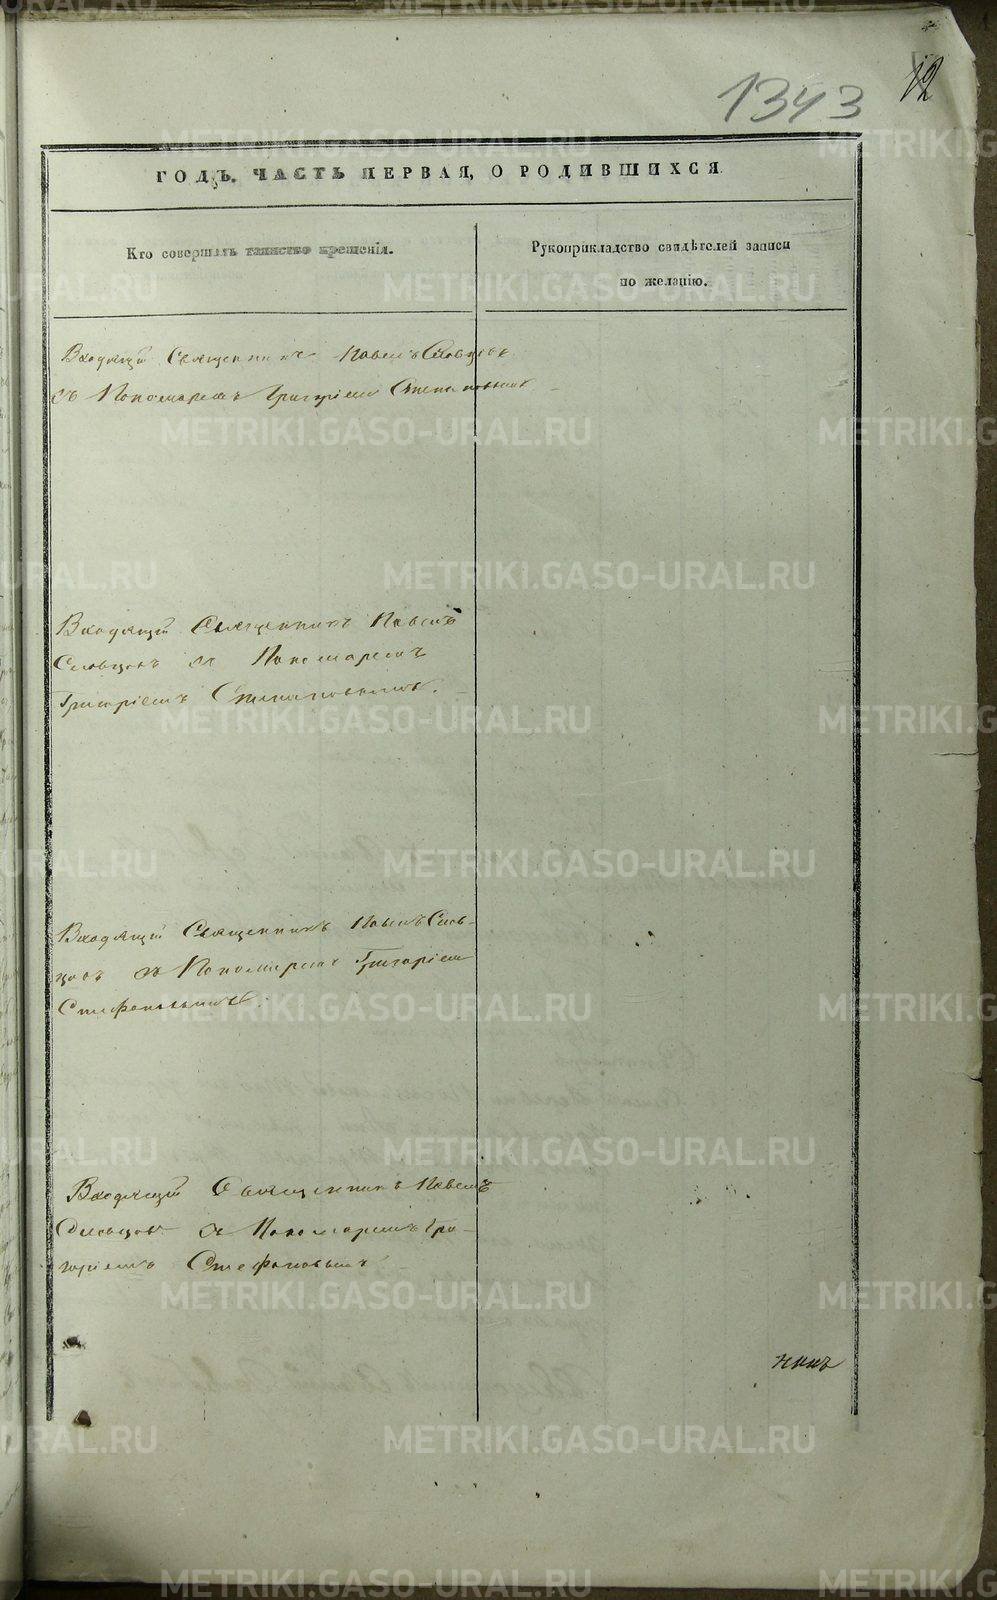 1343
12
ГОДЪ. ЧАСТЬ ПЕРВАЯ, О РОДИВШИХСЯ
Кто совершалъ таинство крещенія.
Рукоприкладство свидѣтелей записи
по желанію.
Входящій Священникъ Павелъ Словцовъ
съ Пономаремъ Григоріем
Входящій Священникъ Павелъ
Словцовъ съ Пономаремъ
Григоріемъ
Входящій Священникъ Павелъ Слов-
цовъ съ Пономаремъ Григоріем
Стефановымъ.
Входящій Священникъ Павелъ
Словцовъ съ Пономаремъ Гри-
горіемъ Стефановымъ
METRIKI.GASO-URAL.RU